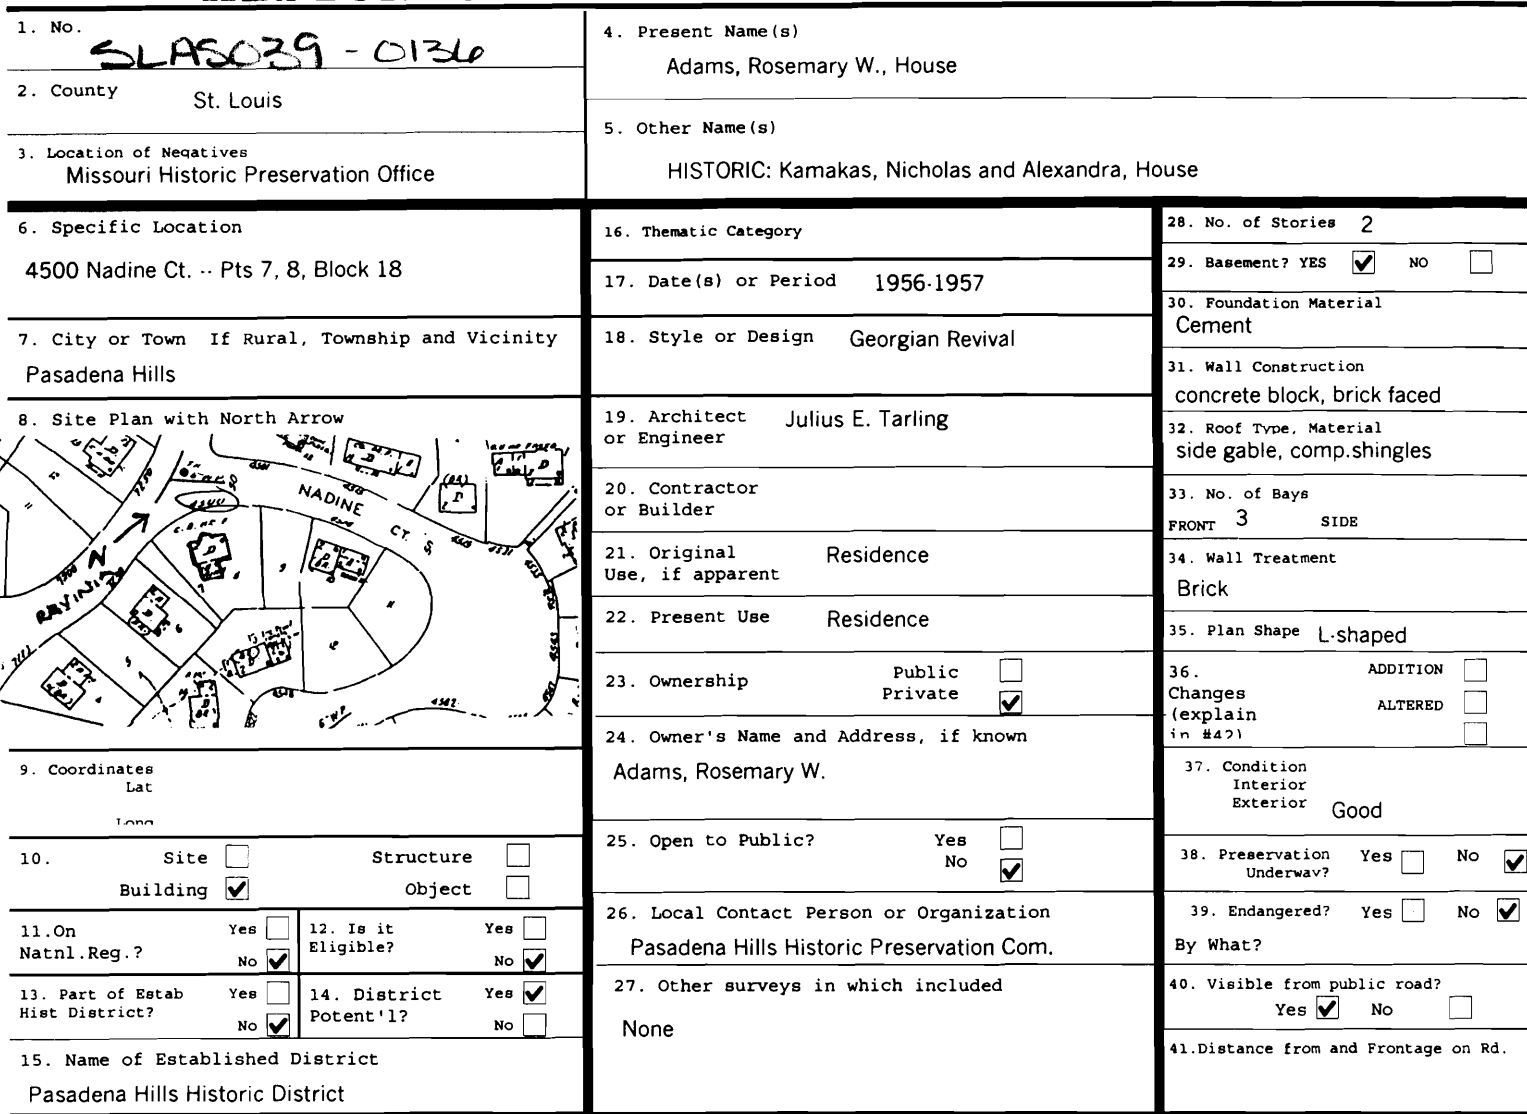 1. No.
SLAS039 - 0136
2. County St. Louis
3. Location of Negatives
Missouri Historic Preservation Office
4. Present Name(s)
Adams, Rosemary W., House
5. Other Name(s)
HISTORIC: Kamakas, Nicholas and Alexandra, House
6. Specific Location
4500 Nadine Ct. -- Pts 7, 8, Block 18
7. City or Town If Rural, Township and Vicinity
Pasadena Hills
8. Site Plan with North Arrow
NADINE CT. S.
N
RAVINIA
9. Coordinates
Lat
Long
10. Site Structure
Building Object
11.On Yes
Natnl.Reg.? No
12. Is it Yes
Eligible? No
13. Part of Estab Yes
Hist District? No
14. District Yes
Potent'l? No
15. Name of Established District
Pasadena Hills Historic District
16. Thematic Category
17. Date(s) or Period 1956-1957
18. Style or Design Georgian Revival
19. Architect Julius E. Tarling
or Engineer
20. Contractor
or Builder
21. Original Residence
Use, if apparent
22. Present Use Residence
23. Ownership Public
Private
24. Owner's Name and Address, if known
Adams, Rosemary W.
25. Open to Public? Yes
No
26. Local Contact Person or Organization
Pasadena Hills Historic Preservation Com.
27. Other surveys in which included
None
28. No. of Stories 2
29. Basement? YES NO
30. Foundation Material
Cement
31. Wall Construction
concrete block, brick faced
32. Roof Type, Material
side gable, comp.shingles
33. No. of Bays
FRONT 3 SIDE
34. Wall Treatment
Brick
35. Plan Shape L-shaped
36. ADDITION
Changes ALTERED
(explain
in #42)
37. Condition
Interior
Exterior Good
38. Preservation Yes No
Underway?
39. Endangered? Yes No
By What?
40. Visible from public road?
Yes No
41.Distance from and Frontage on Rd.